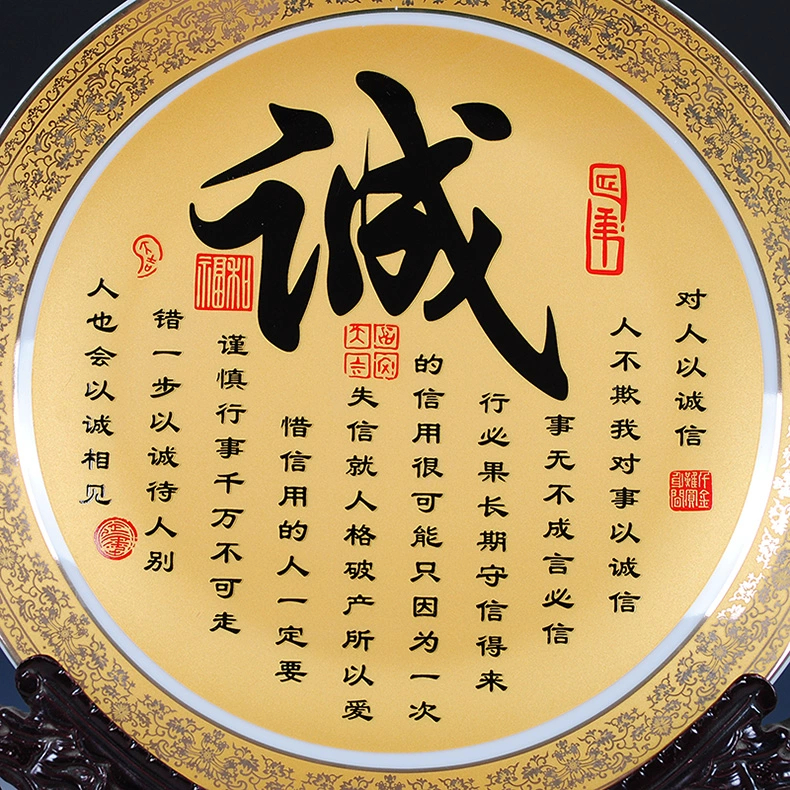 誠
对人以诚信
人不欺我对事以诚信
事无不成言必信
行必果长期守信得来
的信用很可能只因为一次
失信就人格破产所以爱
惜信用的人一定要
谨慎行事千万不可走
错一步以诚待人别
人也会以诚相见
和福